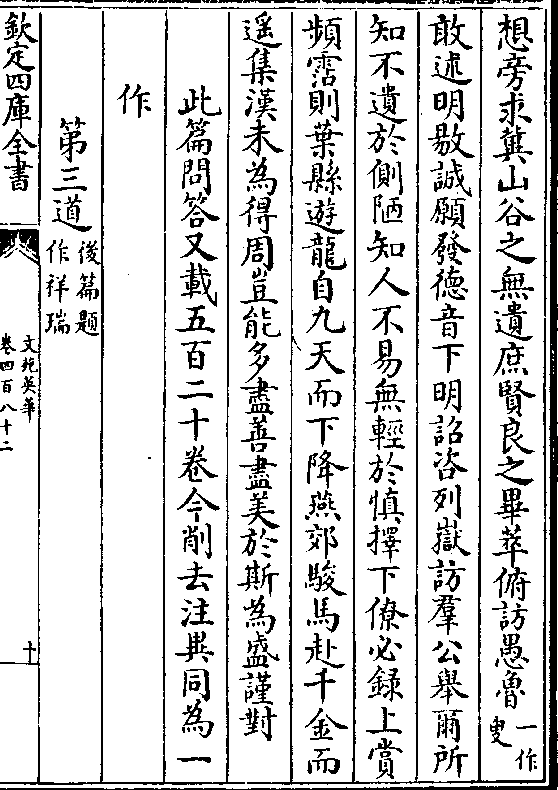 想旁求冀山谷之無遺庶賢良之畢萃俯訪愚魯一作叟
敢述明敭誠願發德音下明詔咨列嶽訪羣公舉爾所
知不遺於側陋知人不易無輕於慎擇下僚必録上賞
頻霑則葉縣遊龍自九天而下降燕郊駿馬赴千金而
遥集漢未為得周豈能多盡善盡美於斯為盛謹對
此篇問答又載五百二十卷今削去注異同為一
作
第三道後篇題作祥瑞
欽定四庫全書
文苑英華
卷四百八十二
十